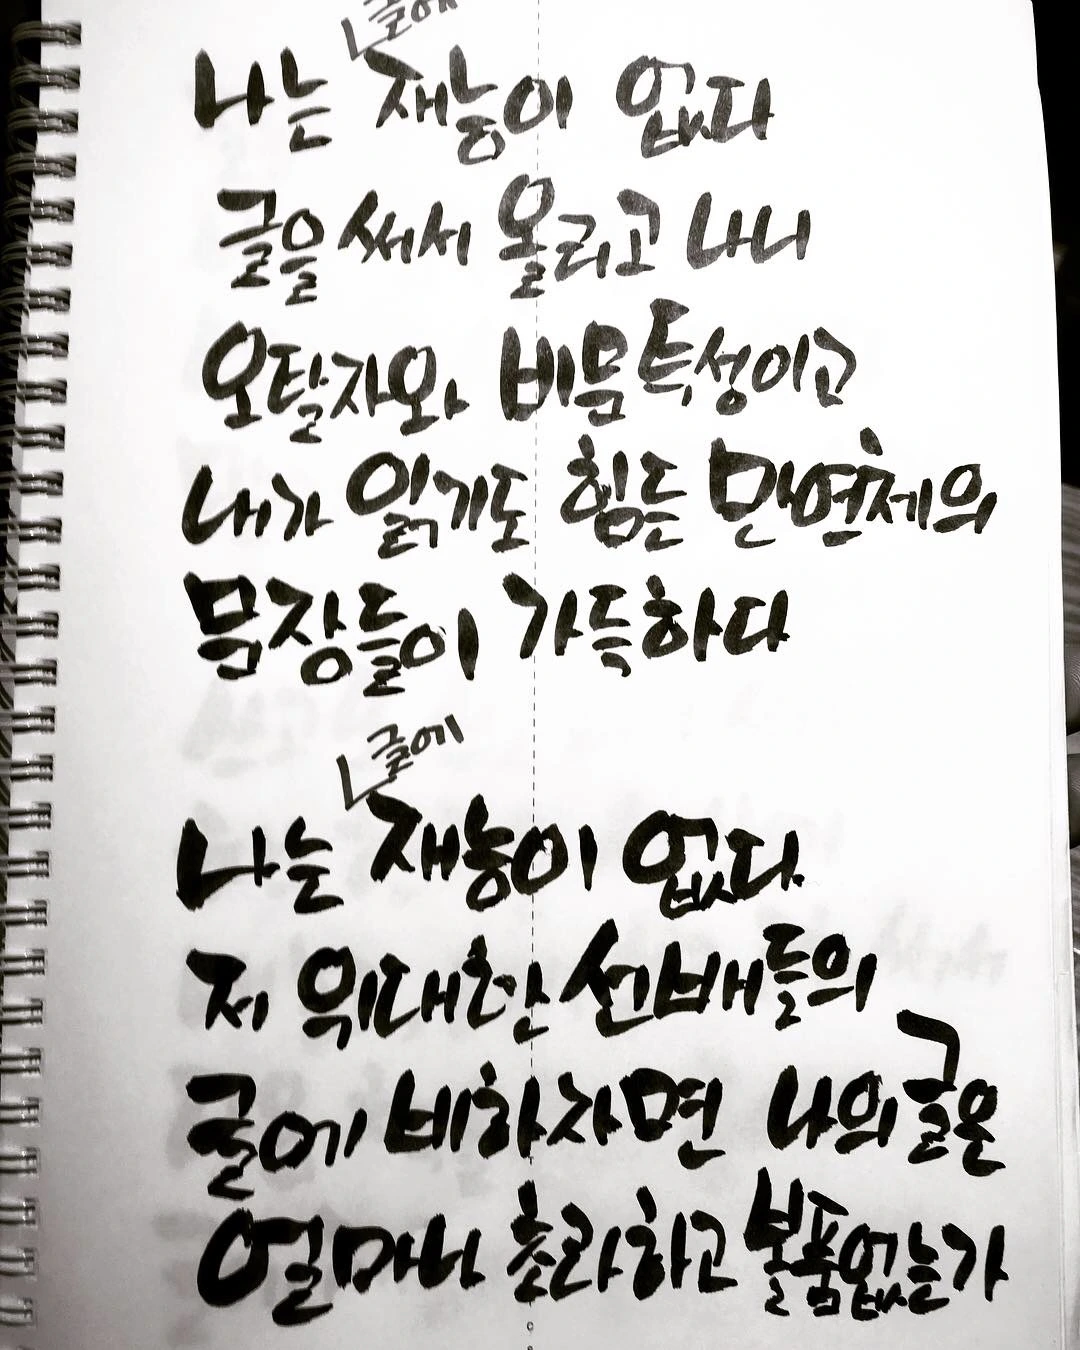 글에
나는 재능이 없다
글을 써서 올리고 나니
오탈자와 비문 특성이고
내가 읽기도 힘든 만연체의
문장들이 가득하다
글에
나는 재능이 없다.
저 위대한 선배들의
글에 비하자면 나의 글은
얼마나 초라하고 볼품없는가